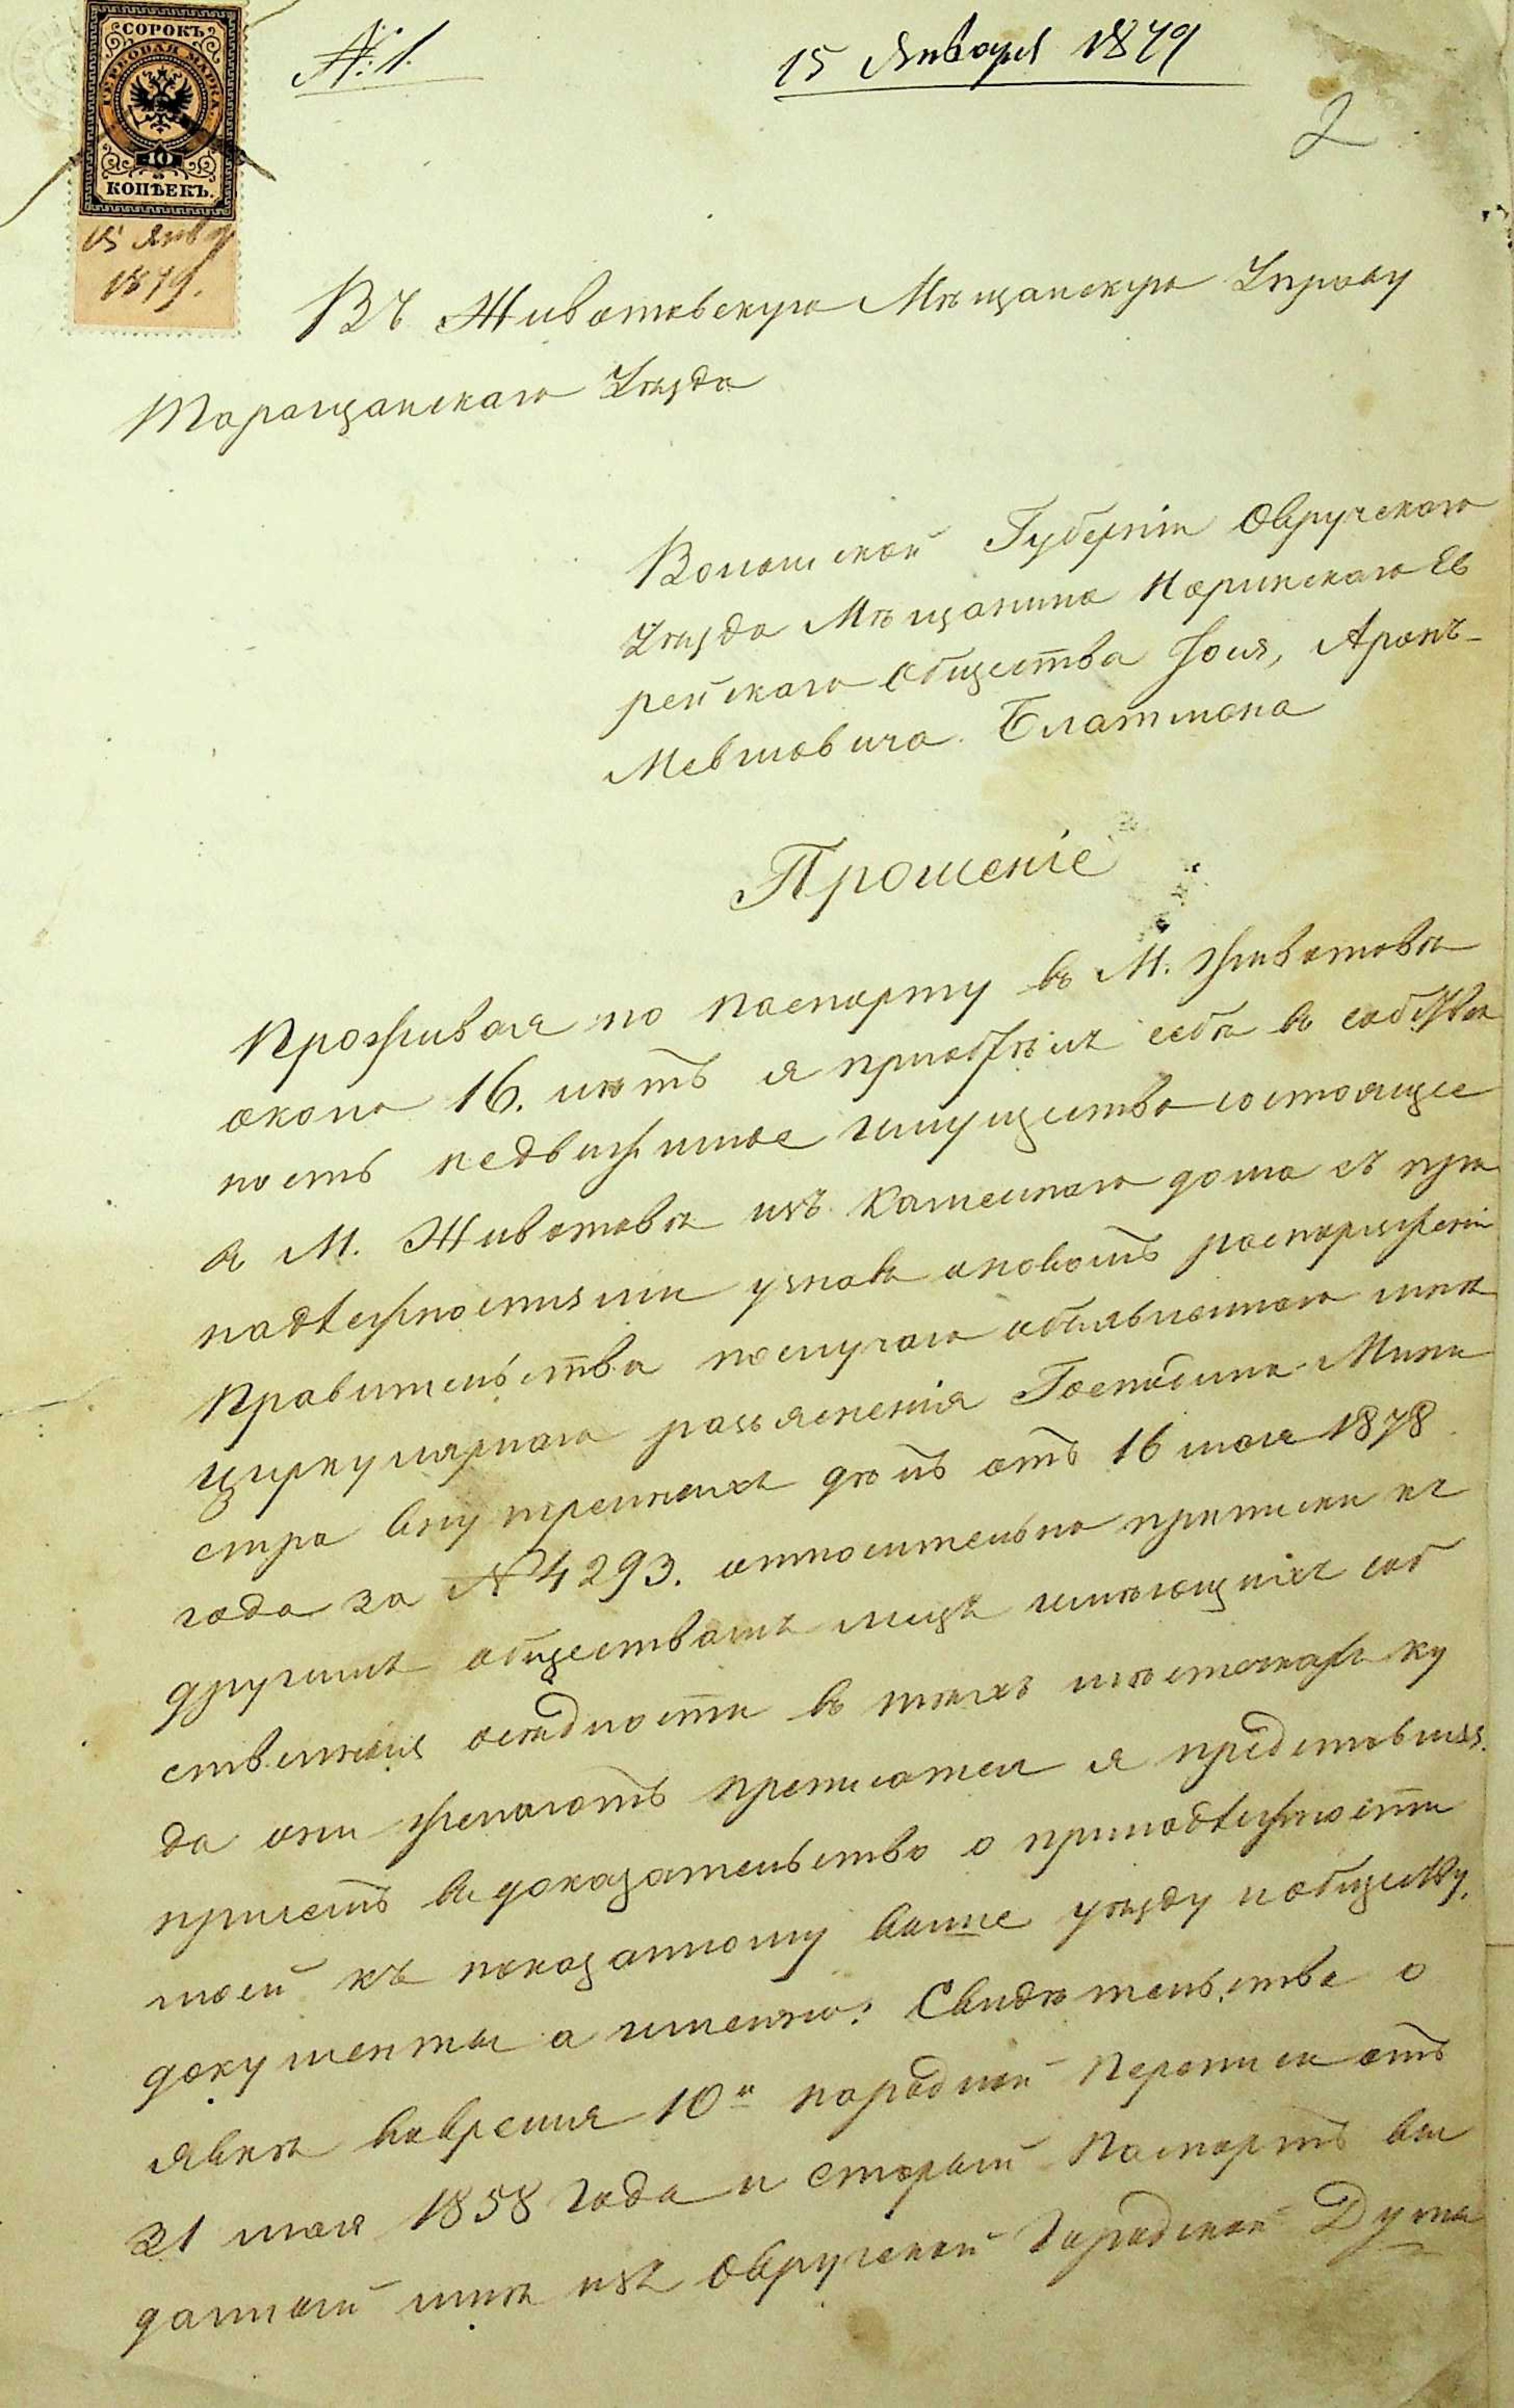 СОРОКЪ
ГЕРБОВАЯ МАРКА
40
КОПѢЕКЪ.
15 Янвр
1879.
№ 1.
15 Января 1879
2
Въ Животовскую Мѣщанскую Управу
Таращанскаго Уѣзда
Волынской Губерніи Овручскаго
Уѣзда Мѣщанина Норинскаго Ев
рейскаго общества Іоля, Аронъ-
Мевшовича Блатмана
Прошеніе
Проживая по паспорту въ М. Животовкѣ
около 16. лѣтъ я пріобрѣлъ себѣ въ собствен
ность недвижимое имущество состоящее
въ М. Животовкѣ изъ каменнаго дома съ при
надлежностями узнавъ оновомъ распоряженіи
Правительства послучаю объявленнаго мнѣ
циркулярнаго разъясненія Господина Мини
стра внутреннихъ дѣлъ отъ 16 мая 1878
года за № 4293. относительно приписки къ
другимъ обществамъ лицъ имѣющихъ соб
ственныя осѣдлости въ тѣхъ мѣстечкахъ ку
да они желаютъ преписатся я представляя
присемъ въ доказательство о принадлежности
моей къ показанному выше уѣзду и обществу
документы а именно: Свидѣтельство о
явкѣ вовремя 10й народной Переписи отъ
31 мая 1858 года и старый Паспортъ вы
данный мнѣ изъ Овручской Городской Думы